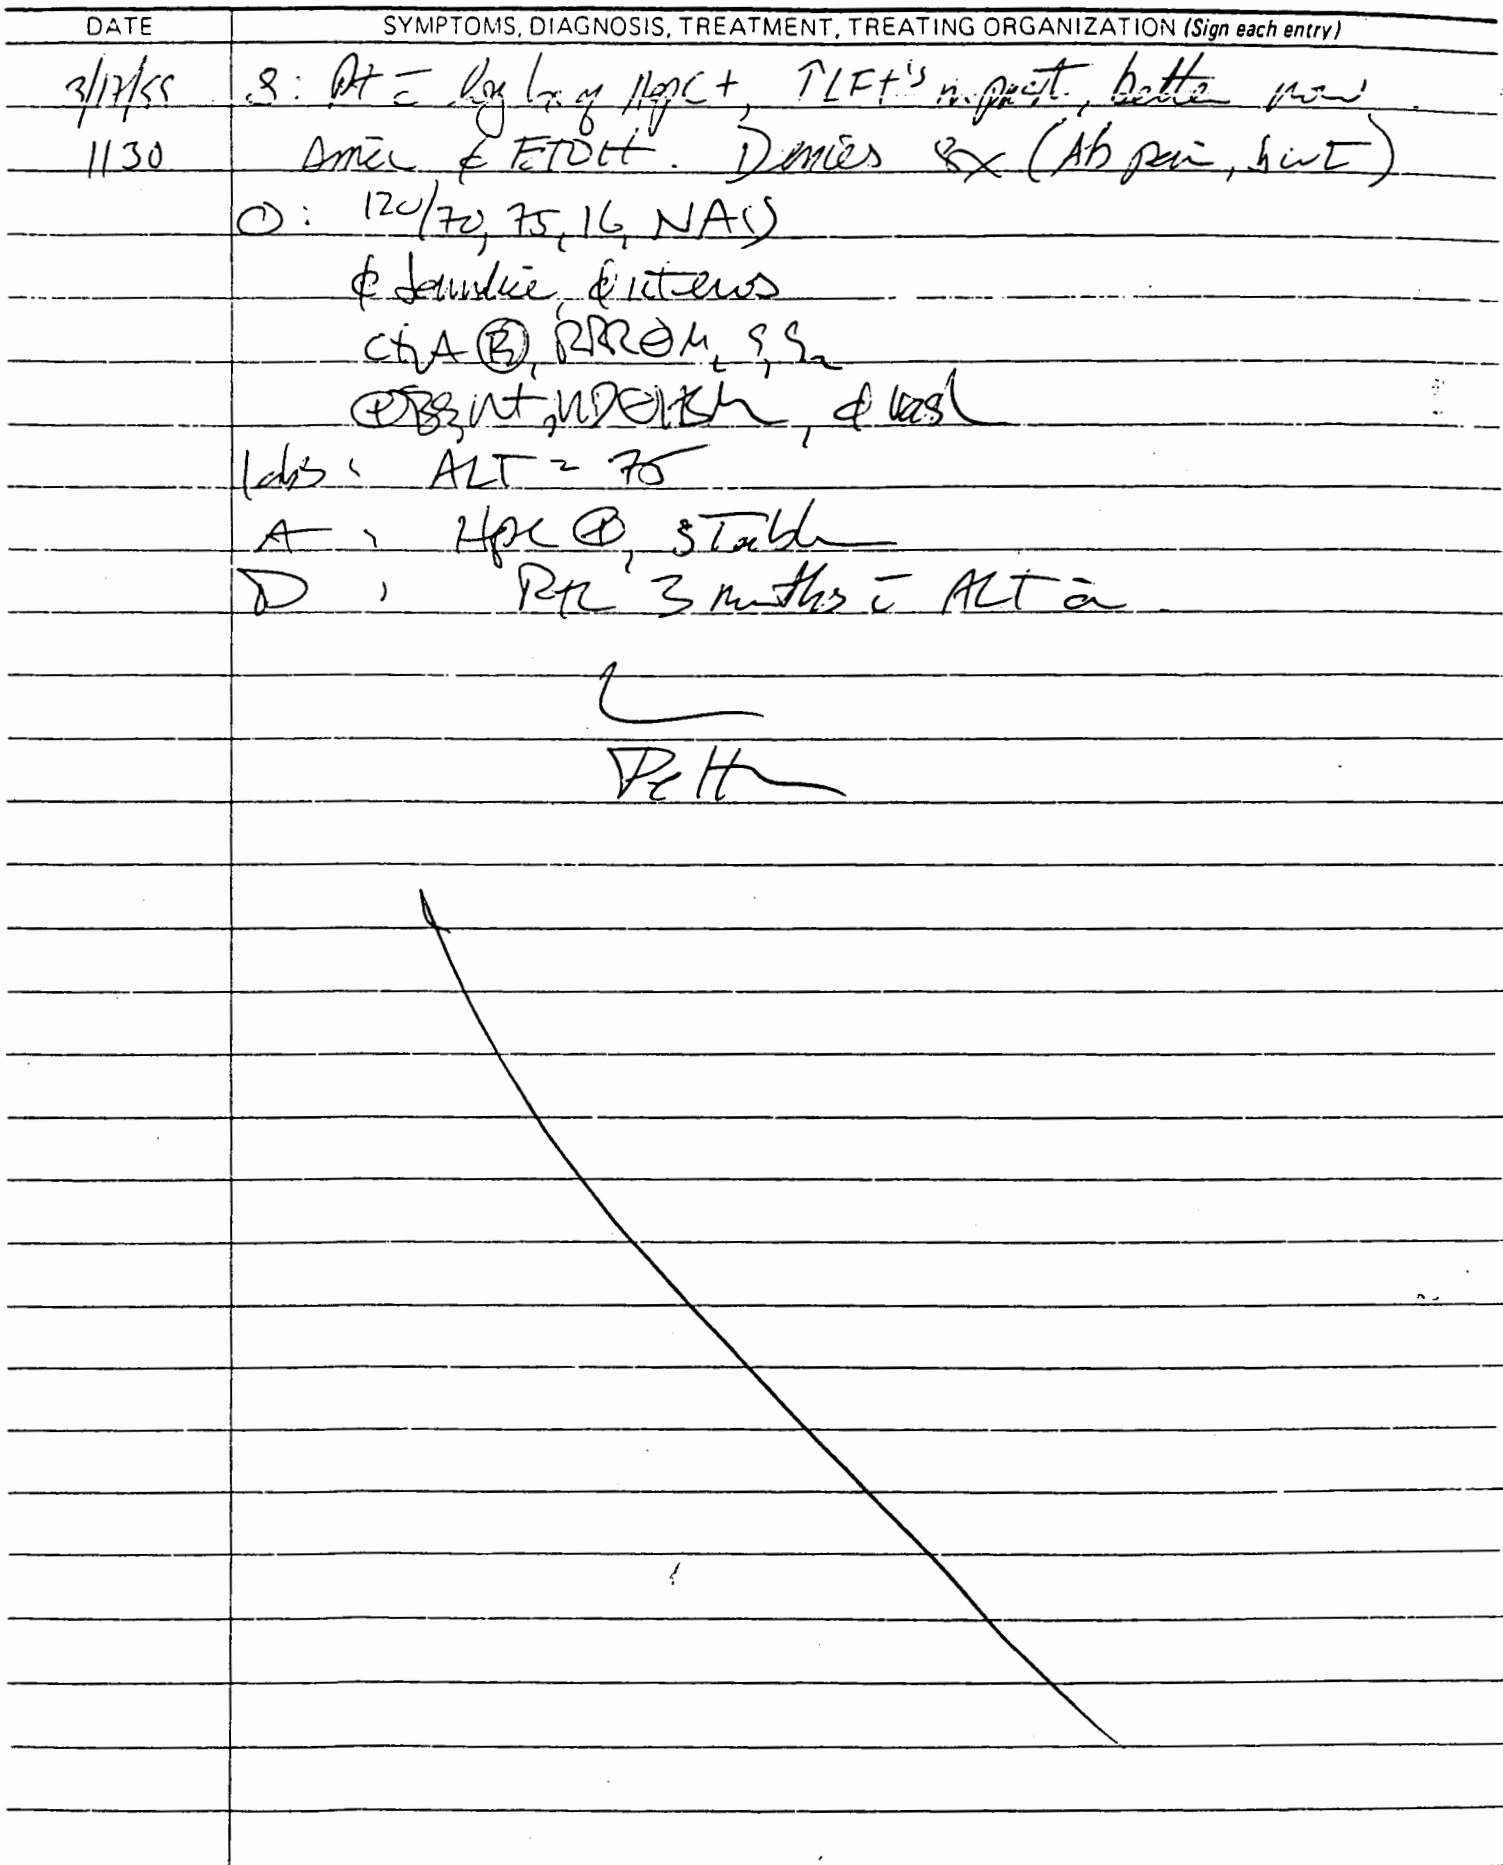 DATE SYMPTOMS, DIAGNOSIS, TREATMENT, TREATING ORGANIZATION (Sign each entry)
S: Pt c̄ long hx of HepC +, ↑LFT's in past, better now
1130 since ∅ ETOH. Denies sx (Ab pain,
O: 120/70, 75, 16, NAD
∅ Jaundice, ∅ icterus
CTA Ⓑ, RRR⊖M, S₁S₂
⊕BS, NT, ND⊖HSM, ∅ rash
labs: ALT = 75
A: HpC ⊕, stable
P: RTC 3 months c̄ ALT